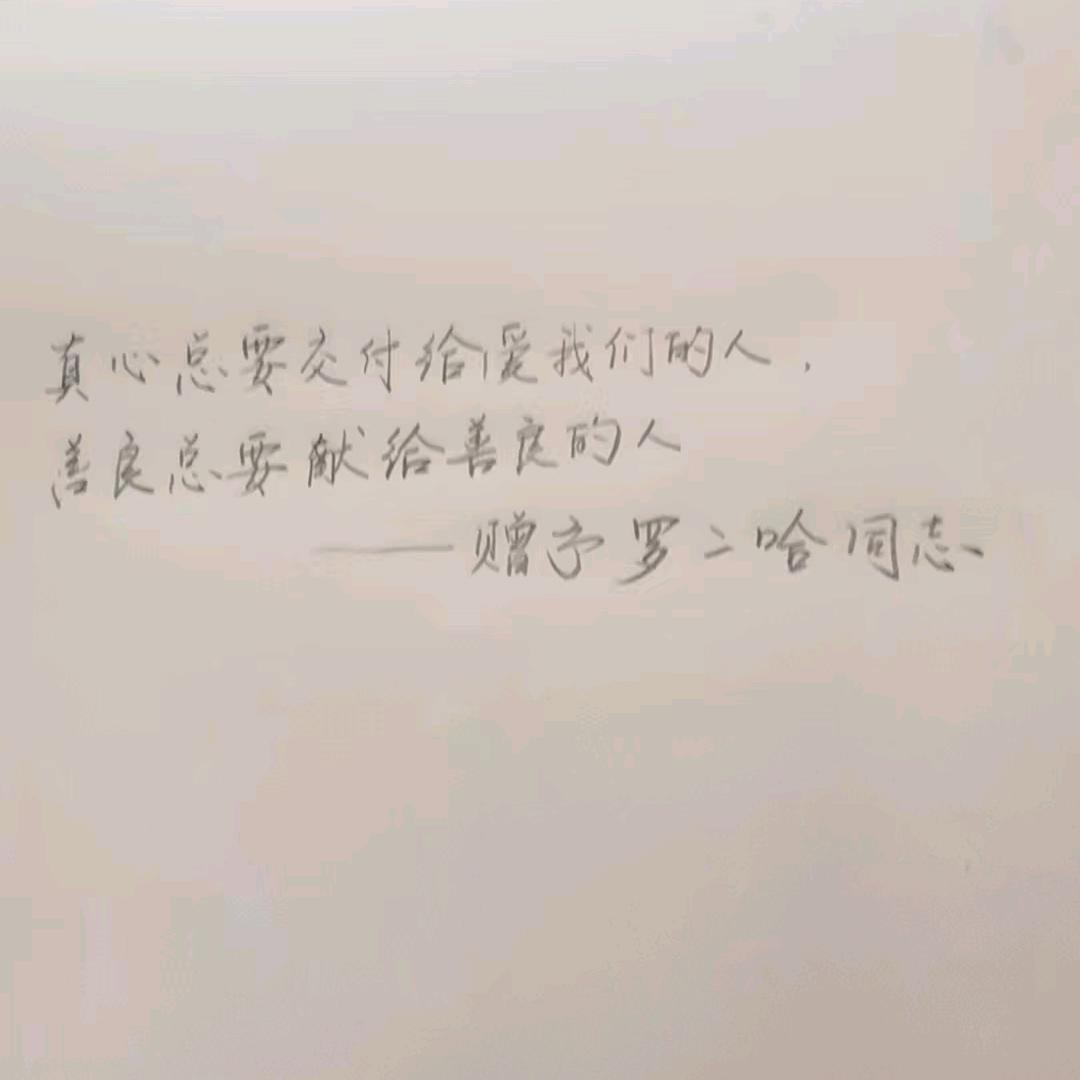 真心总要交付给爱我们的人，
善良总要献给善良的人
——赠予罗二哈同志